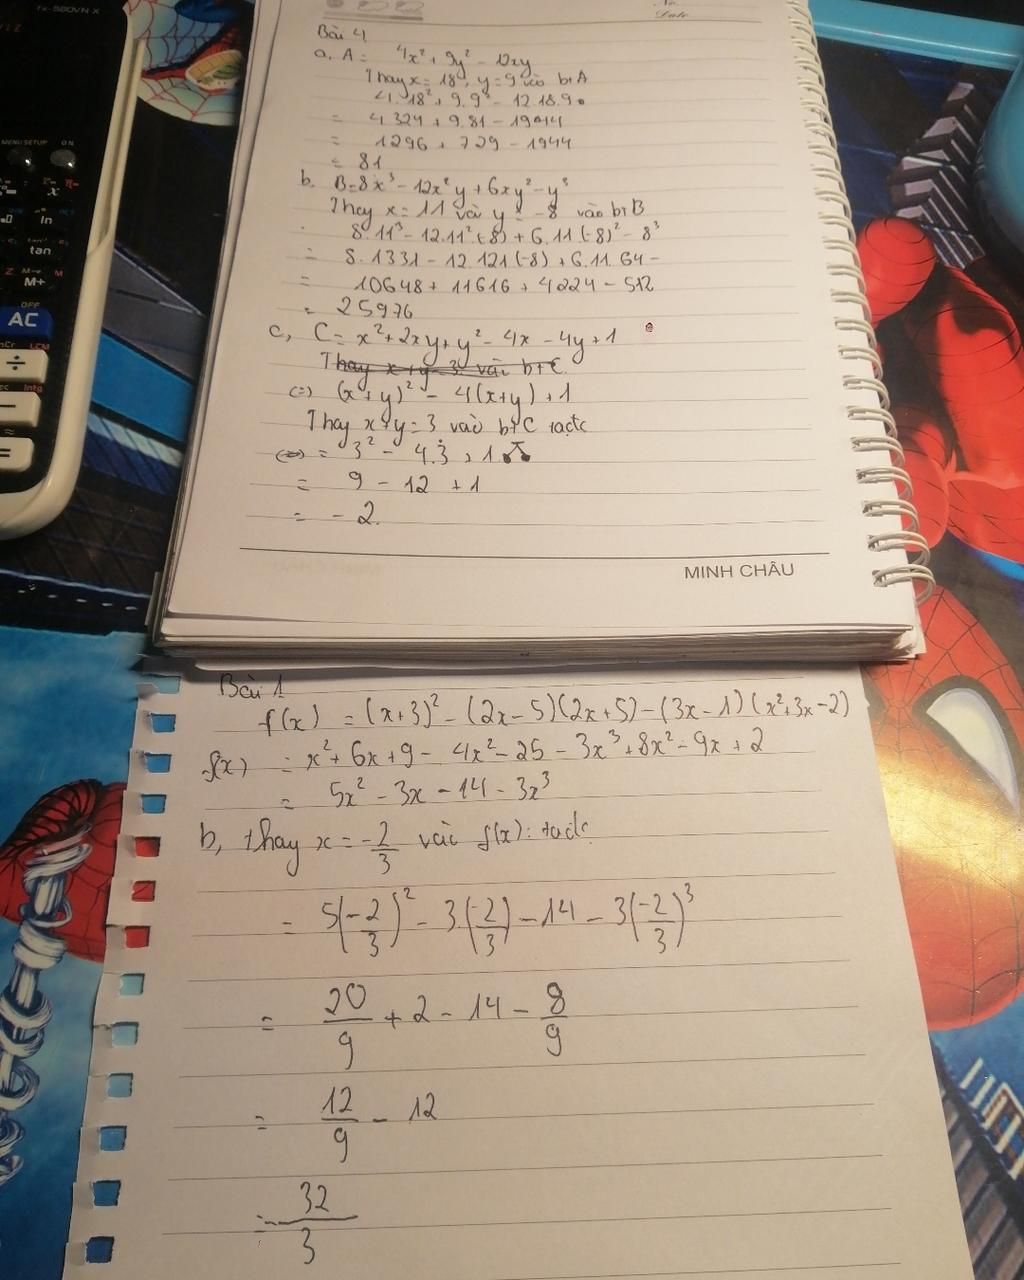 fx-580VN X
MENU SETUP ON
x
ln
tan
M+
OFF
AC
÷
−
=
No.
Date
Bài 4
a. A = 4x² + 9y² - 12xy
Thay x = 18, y = 9 vào btA
4.18² + 9.9² - 12.18.9
= 4.324 + 9.81 - 1944
= 1296 + 729 - 1944
= 81
b. B = 8x³ - 12x²y + 6xy² - y³
Thay x = 11 và y = -8 vào btB
8.11³ - 12.11²(-8) + 6.11(-8)² - 8³
= 8.1331 - 12.121(-8) + 6.11.64 -
= 10648 + 11616 + 4224 - 512
= 25976
c, C = x² + 2xy + y² - 4x - 4y + 1
Thay x+y=3 vào btC
(=) (x+y)² - 4(x+y) + 1
Thay x+y = 3 vào btC tađc
(=) = 3² - 4.3 + 1
= 9 - 12 + 1
= - 2.
MINH CHÂU
Bài 1
f(x) = (x+3)² - (2x-5)(2x+5) - (3x-1)(x²+3x-2)
f(x) = x² + 6x + 9 - 4x² - 25 - 3x³ + 8x² - 9x + 2
= 5x² - 3x - 14 - 3x³
b, thay x = -2/3 vào f(x): tađc
= 5(-2/3)² - 3(-2/3) - 14 - 3(-2/3)³
= 20/9 + 2 - 14 - 8/9
= 12/9 - 12
= - 32/3